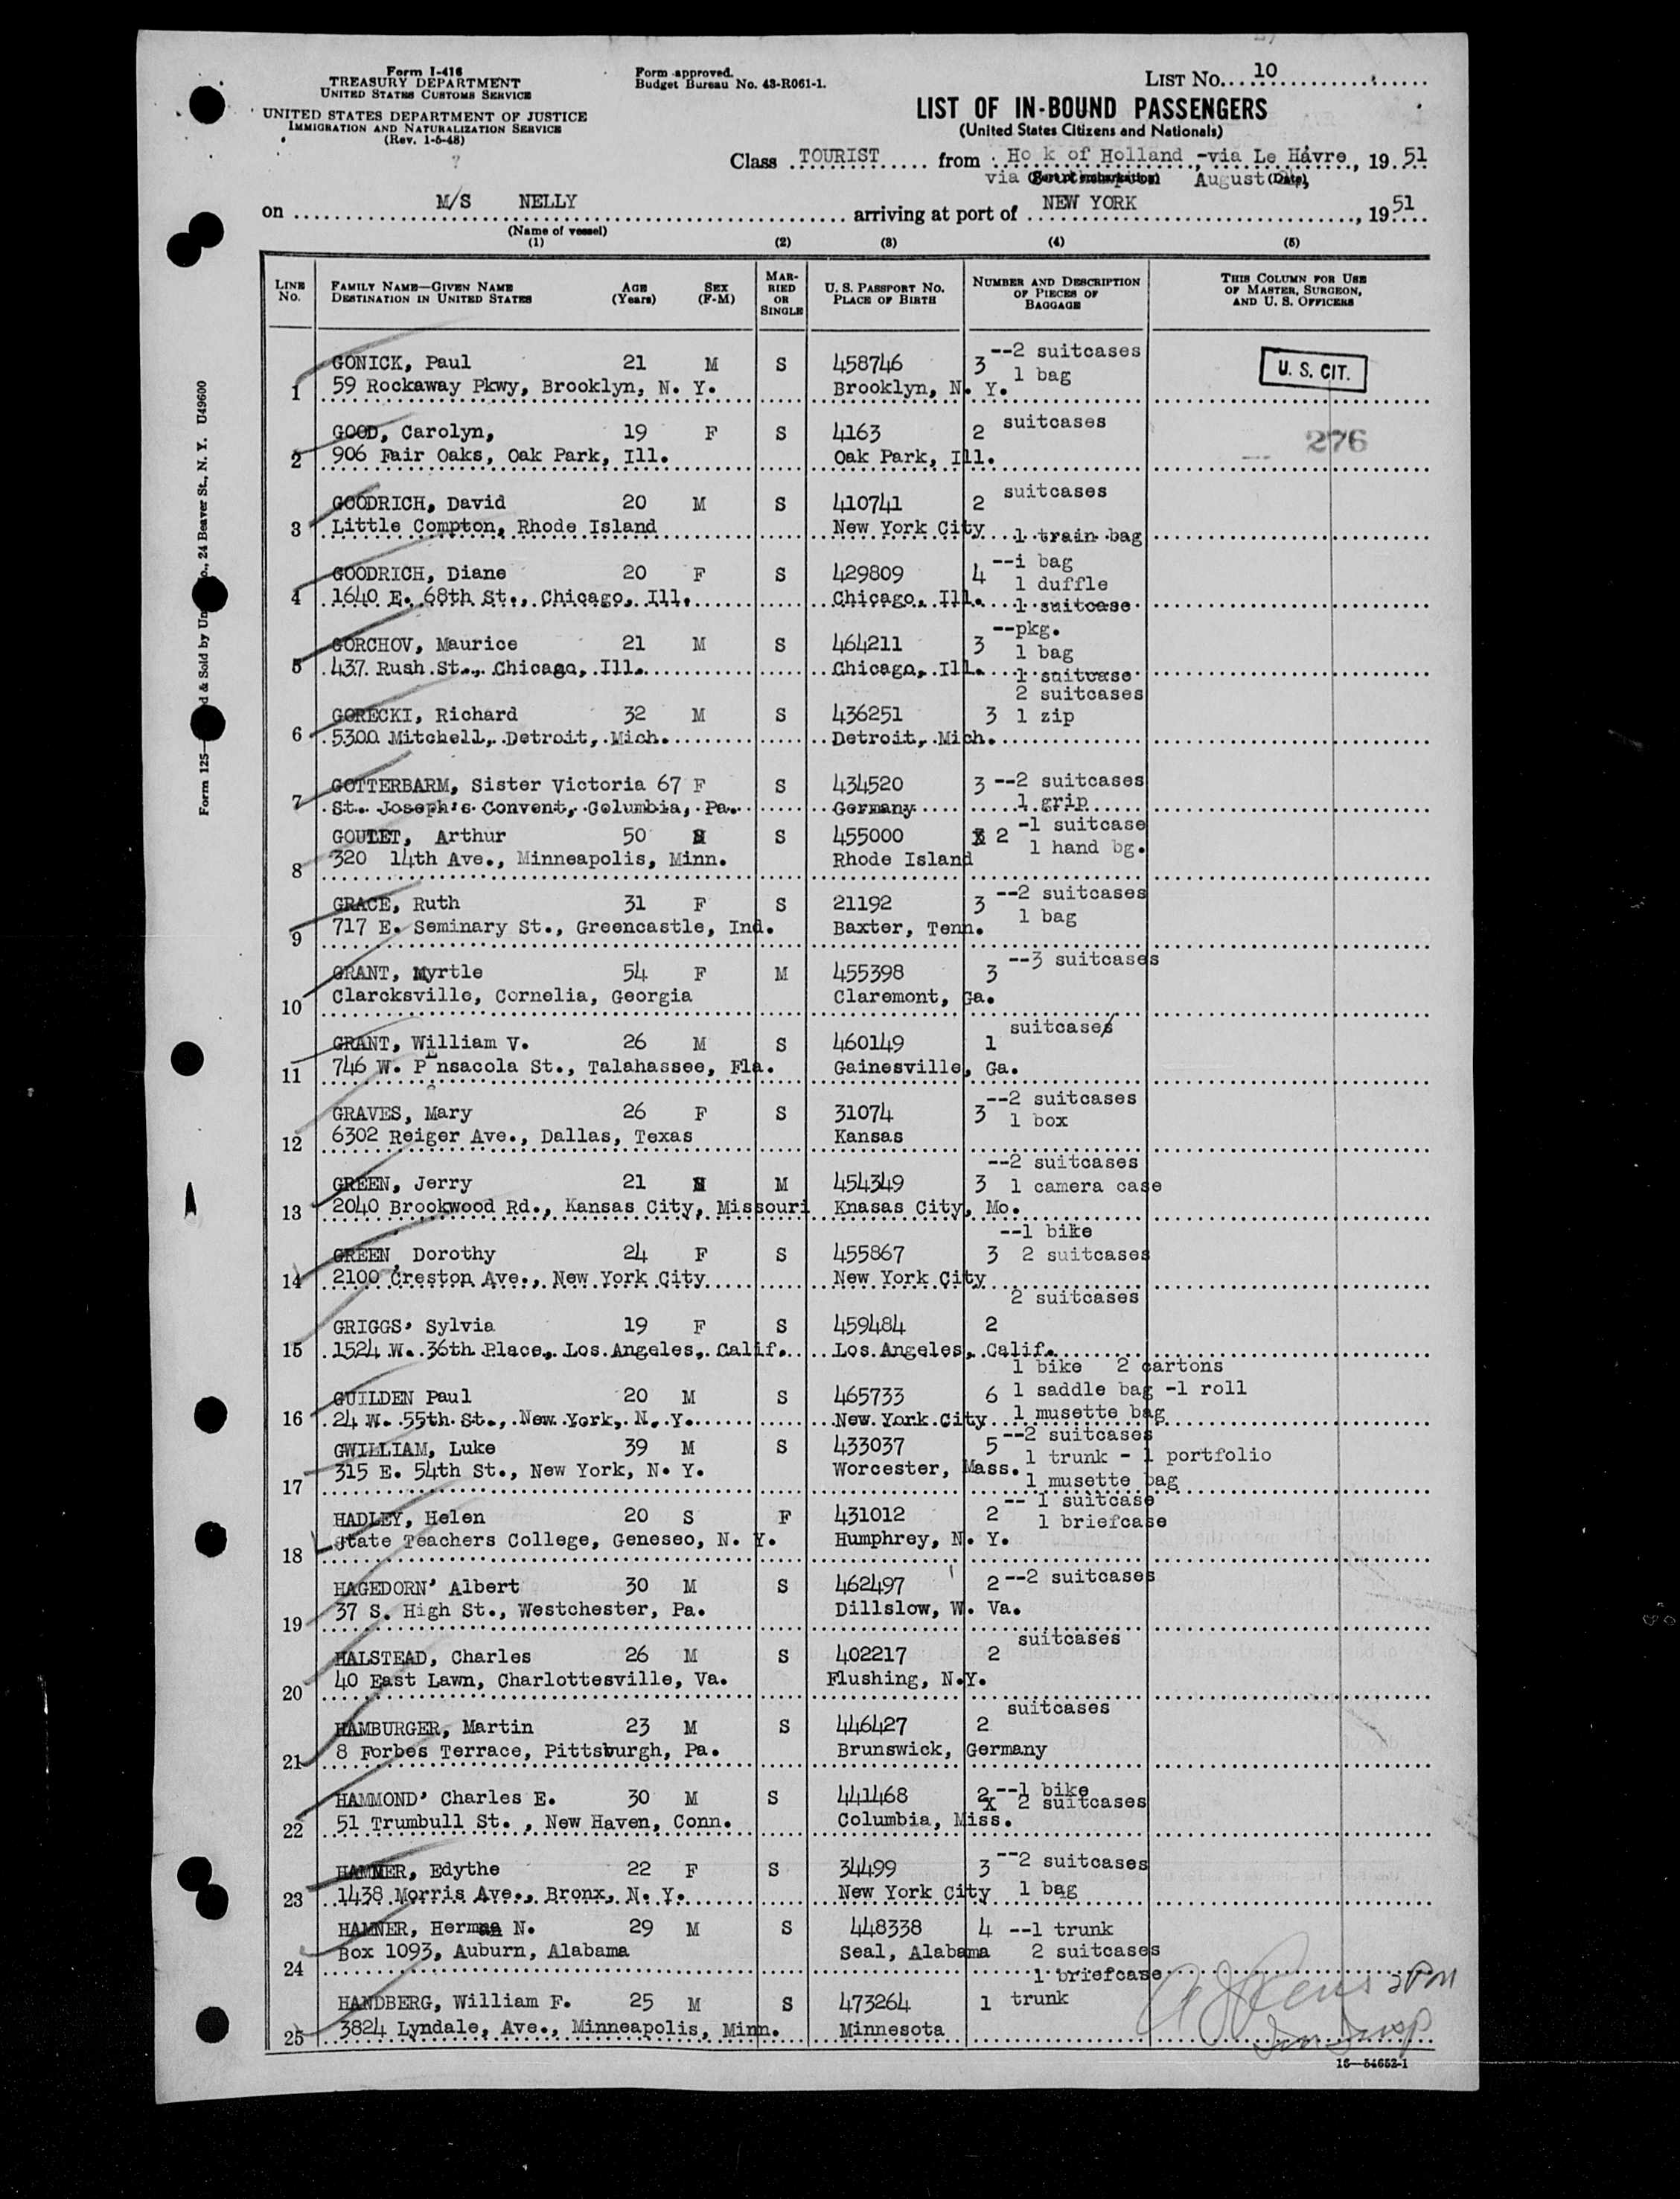 Form I-416
TREASURY DEPARTMENT
UNITED STATES CUSTOMS SERVICE
UNITED STATES DEPARTMENT OF JUSTICE
IMMIGRATION AND NATURALIZATION SERVICE
(Rev. 1-5-48)
Form approved.
Budget Bureau No. 43-R061-1.
LIST No. 10
LIST OF IN-BOUND PASSENGERS
(United States Citizens and Nationals)
Class TOURIST from Ho k of Holland -via Le Havre, 19 51
via August (Date)
on M/S NELLY arriving at port of NEW YORK, 19 51
(Name of vessel)
(1) (2) (3) (4) (5)
LINE No. FAMILY NAME—GIVEN NAME DESTINATION IN UNITED STATES AGE (Years) SEX (F-M) MARRIED OR SINGLE U. S. PASSPORT No. PLACE OF BIRTH NUMBER AND DESCRIPTION OF PIECES OF BAGGAGE THIS COLUMN FOR USE OF MASTER, SURGEON, AND U. S. OFFICERS
GONICK, Paul 21 M S 458746 3 --2 suitcases U. S. CIT.
1 59 Rockaway Pkwy, Brooklyn, N. Y. Brooklyn, N. Y. 1 bag
GOOD, Carolyn, 19 F S 4163 2 suitcases 276
2 906 Fair Oaks, Oak Park, Ill. Oak Park, Ill.
GOODRICH, David 20 M S 410741 2 suitcases
3 Little Compton, Rhode Island New York City
1 train bag
GOODRICH, Diane 20 F S 429809 4 --i bag
1 duffle
4 1640 E. 68th St., Chicago, Ill. Chicago, Ill. 1 suitcase
GORCHOV, Maurice 21 M S 464211 3 --pkg.
1 bag
5 437 Rush St., Chicago, Ill. Chicago, Ill. 1 suitcase
2 suitcases
GORECKI, Richard 32 M S 436251 3 1 zip
6 5300 Mitchell, Detroit, Mich. Detroit, Mich.
GOTTERBARM, Sister Victoria 67 F S 434520 3 --2 suitcases
7 St. Joseph's Convent, Columbia, Pa. Germany 1 grip
GOULET, Arthur 50 S 455000 2 -1 suitcase
8 320 14th Ave., Minneapolis, Minn. Rhode Island 1 hand bg.
GRACE, Ruth 31 F S 21192 3 --2 suitcases
9 717 E. Seminary St., Greencastle, Ind. Baxter, Tenn. 1 bag
GRANT, Myrtle 54 F M 455398 3 --3 suitcases
10 Clarcksville, Cornelia, Georgia Claremont, Ga.
GRANT, William V. 26 M S 460149 1 suitcases
11 746 W. Pensacola St., Talahassee, Fla. Gainesville, Ga.
GRAVES, Mary 26 F S 31074 3 --2 suitcases
12 6302 Reiger Ave., Dallas, Texas Kansas 1 box
GREEN, Jerry 21 M 454349 3 --2 suitcases
1 camera case
13 2040 Brookwood Rd., Kansas City, Missouri Knasas City, Mo.
GREEN, Dorothy 24 F S 455867 3 --1 bike
2 suitcases
14 2100 Creston Ave., New York City New York City
GRIGGS, Sylvia 19 F S 459484 2 2 suitcases
15 1524 W. 36th Place, Los Angeles, Calif. Los Angeles, Calif.
1 bike 2 cartons
GUILDEN Paul 20 M S 465733 6 1 saddle bag -1 roll
16 24 W. 55th St., New York, N. Y. New York City 1 musette bag
GWILLIAM, Luke 39 M S 433037 5 --2 suitcases
1 trunk - 1 portfolio
17 315 E. 54th St., New York, N. Y. Worcester, Mass. 1 musette bag
HADLEY, Helen 20 S F 431012 2 -- 1 suitcase
18 State Teachers College, Geneseo, N. Y. Humphrey, N. Y. 1 briefcase
HAGEDORN, Albert 30 M S 462497 2 --2 suitcases
19 37 S. High St., Westchester, Pa. Dillslow, W. Va.
HALSTEAD, Charles 26 M S 402217 2 suitcases
20 40 East Lawn, Charlottesville, Va. Flushing, N.Y.
HAMBURGER, Martin 23 M S 446427 2 suitcases
21 8 Forbes Terrace, Pittsburgh, Pa. Brunswick, Germany
HAMMOND, Charles E. 30 M S 441468 2 --1 bike
x 2 suitcases
22 51 Trumbull St. , New Haven, Conn. Columbia, Miss.
HAMMER, Edythe 22 F S 34499 3 --2 suitcases
23 1438 Morris Ave., Bronx, N. Y. New York City 1 bag
HAMNER, Herman N. 29 M S 448338 4 --1 trunk
24 Box 1093, Auburn, Alabama Seal, Alabama 2 suitcases
1 briefcase
HANDBERG, William F. 25 M S 473264 1 trunk
25 3824 Lyndale, Ave., Minneapolis, Minn. Minnesota
16—54652-1
Form 125— d & Sold by Un o., 24 Beaver St., N. Y. U49600